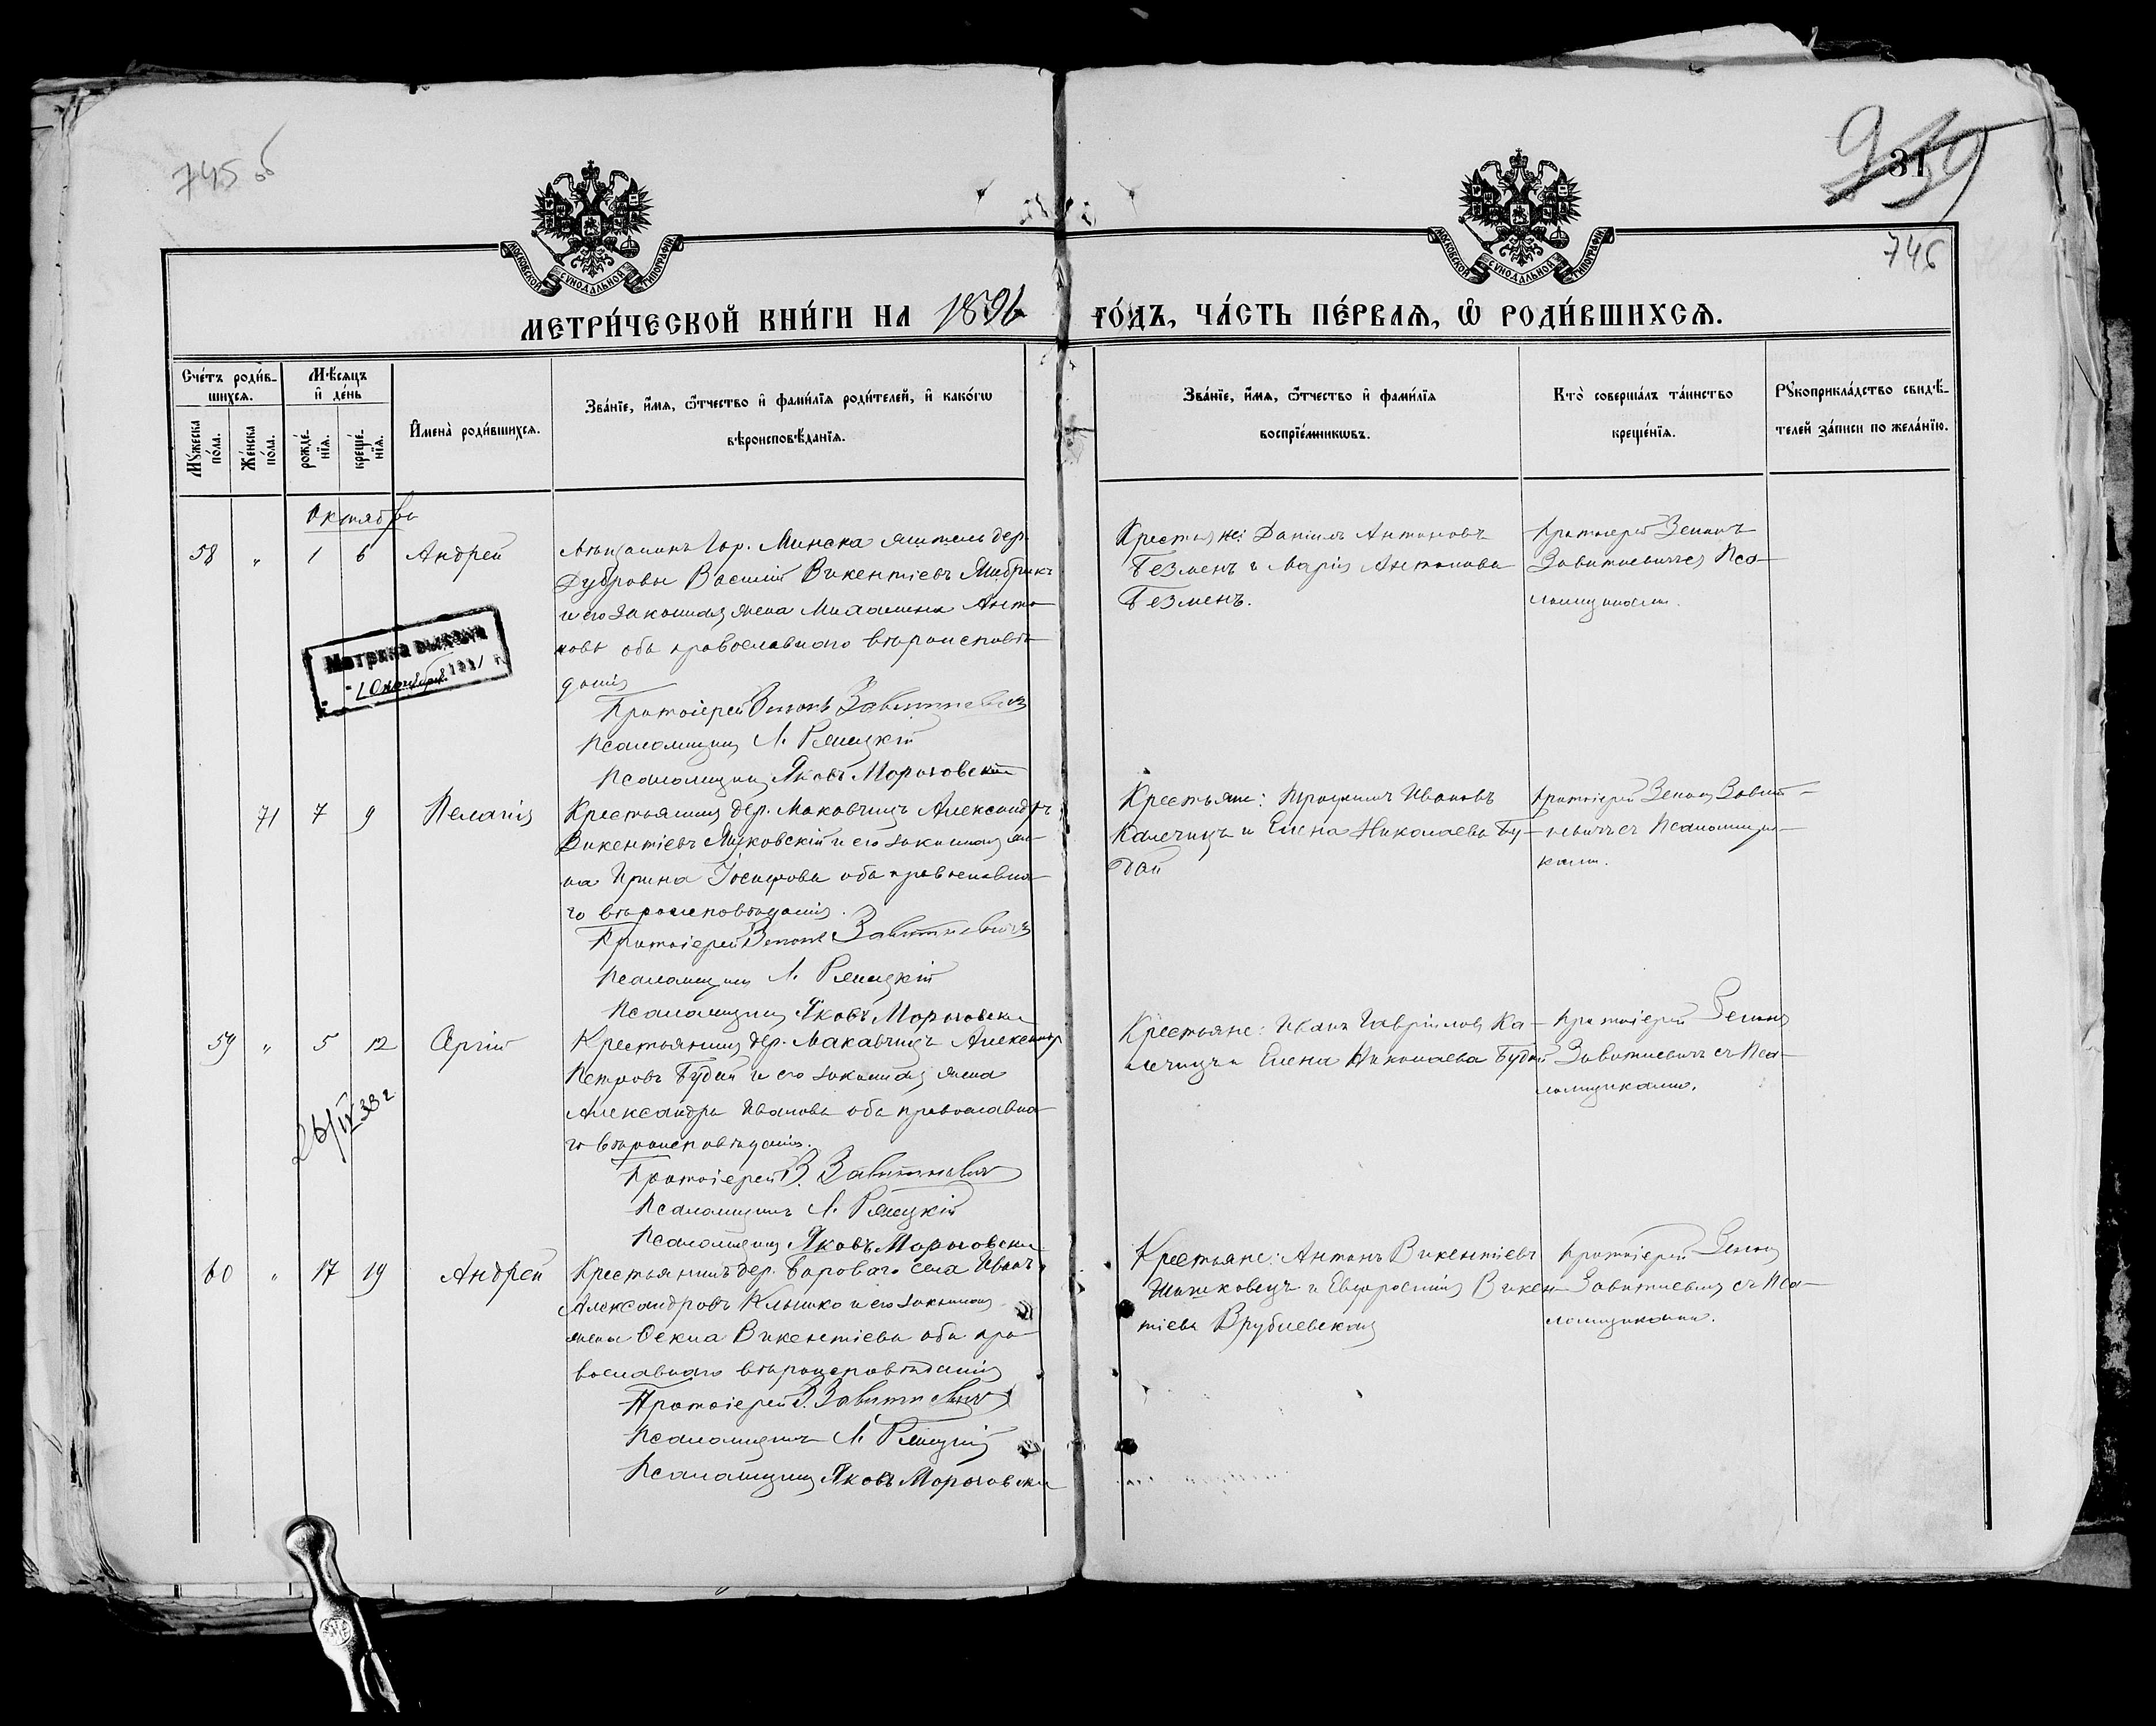 745 об
31
746
МОСКОВСКОЙ СУНОДАЛЬНОЙ ТИПОГРАФІИ
МОСКОВСКОЙ СУНОДАЛЬНОЙ ТИПОГРАФІИ
МЕТРИ́ЧЕСКОЙ КНИ́ГИ НА 1896 ГО́ДЪ, ЧА́СТЬ ПЕ́РВАѦ, Ѡ҆ РОДИ́ВШИХСѦ.
Сче́тъ роди́в-
шихсѧ.
Мꙋ́жеска по́ла.
Же́нска по́ла.
Мѣ́сѧцъ
и҆ де́нь
рожде́-нїѧ.
креще́-нїѧ.
И҆мена̀ роди́вшихсѧ.
Зва́нїе, и҆́мѧ, ѻ҆́тчество и҆ фами́лїѧ роди́телей, и҆ како́гѡ
вѣроисповѣ́данїѧ.
Зва́нїе, и҆́мѧ, ѻ҆́тчество и҆ фами́лїѧ
воспрїе́мникѡвъ.
Кто̀ соверша́лъ та́инство
креще́нїѧ.
Рꙋкоприкла́дство свидѣ́-
телей за́писи по жела́нїю.
Октябрь
58 " 1 6 Андрей
Мѣщанинъ гор. Минска житель дер.
Дубровы Василій Викентіевъ
и его законная жена Анто-
нова оба православнаго вѣроисповѣ-
данія
Протоіерей Зенонъ Завитневичъ
Псаломщикъ Л.
Псаломщикъ Яковъ Мороговскій
Крестьяне: Даніилъ Антоновъ
Безменъ и Марія Антонова
Безменъ.
Протоіерей Зенонъ
Завитневичъ съ Пса-
ломщиками.
Матрика выдана
1 Октября
71 7 9 Пелагія
Крестьянинъ дер. Маковчицъ Александръ
Викентіевъ и его законная же-
на Ирина Іосифова оба православна-
го вѣроисповѣданія.
Протоіерей Зенонъ Завитневичъ
Псаломщикъ Л.
Псаломщикъ Яковъ Мороговскій
Крестьяне: Ивановъ
Калечицъ и Елена Николаева Бу-
дай
Протоіерей Зенонъ Завит-
невичъ съ Псаломщи-
ками.
59 " 5 12 Сергій
Крестьянинъ дер. Макавчицъ Александръ
Петровъ Будай и его законная жена
Александра Иванова оба православна-
го вѣроисповѣданія.
Протоіерей З. Завитневичъ
Псаломщикъ Л.
Псаломщикъ Яковъ Мороговскій
Крестьяне: Иванъ Гавріиловъ Ка-
лечицъ и Елена Николаева Будай
Протоіерей Зенонъ
Завитневичъ съ Пса-
ломщиками.
26/IV 38 г
60 " 17 19 Андрей
Крестьянинъ дер. Бороваго села Иванъ
Александровъ Клышко и его законная
жена Фекла Викентіева оба пра-
вославнаго вѣроисповѣданія
Протоіерей З. Завитневичъ
Псаломщикъ Л.
Псаломщикъ Яковъ Мороговскій
Крестьяне: Антонъ Викентіевъ
Шишковецъ и Евфросинія Викен-
тіева Врублевская
Протоіерей Зенонъ
Завитневичъ съ Пса-
ломщиками.